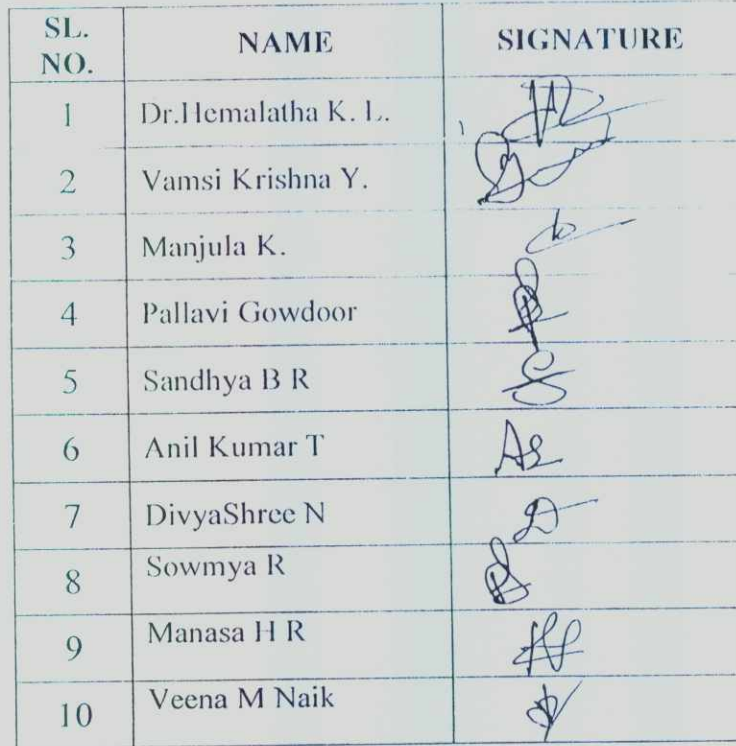 SL. NO. NAME SIGNATURE
1 Dr.Hemalatha K. L.
2 Vamsi Krishna Y.
3 Manjula K.
4 Pallavi Gowdoor
5 Sandhya B R
6 Anil Kumar T
7 DivyaShree N
8 Sowmya R
9 Manasa H R
10 Veena M Naik